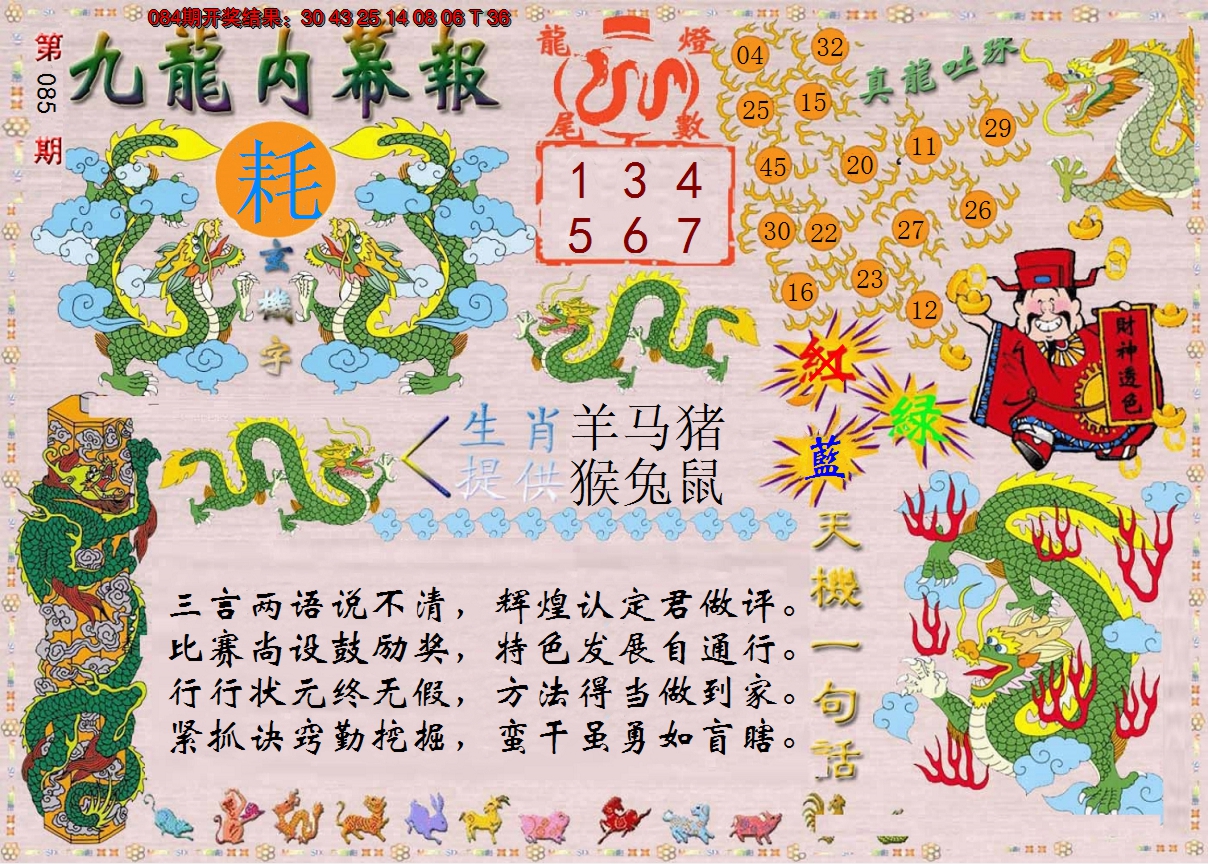 084期开奖结果：30 43 25 14 08 06 T 36
第
085
期
九龍内幕報
耗
玄
機
字
龍 燈
尾 數
1 3 4
5 6 7
真龍吐珠
04 32
25 15
11 29
45 20
26
30 22 27
23
16 12
財神透色
紅
綠
藍
生肖 羊马猪
提供 猴兔鼠
天機一句話
三言两语说不清，辉煌认定君做评。
比赛尚设鼓励奖，特色发展自通行。
行行状元终无假，方法得当做到家。
紧抓诀窍勤挖掘，蛮干虽勇如盲瞎。